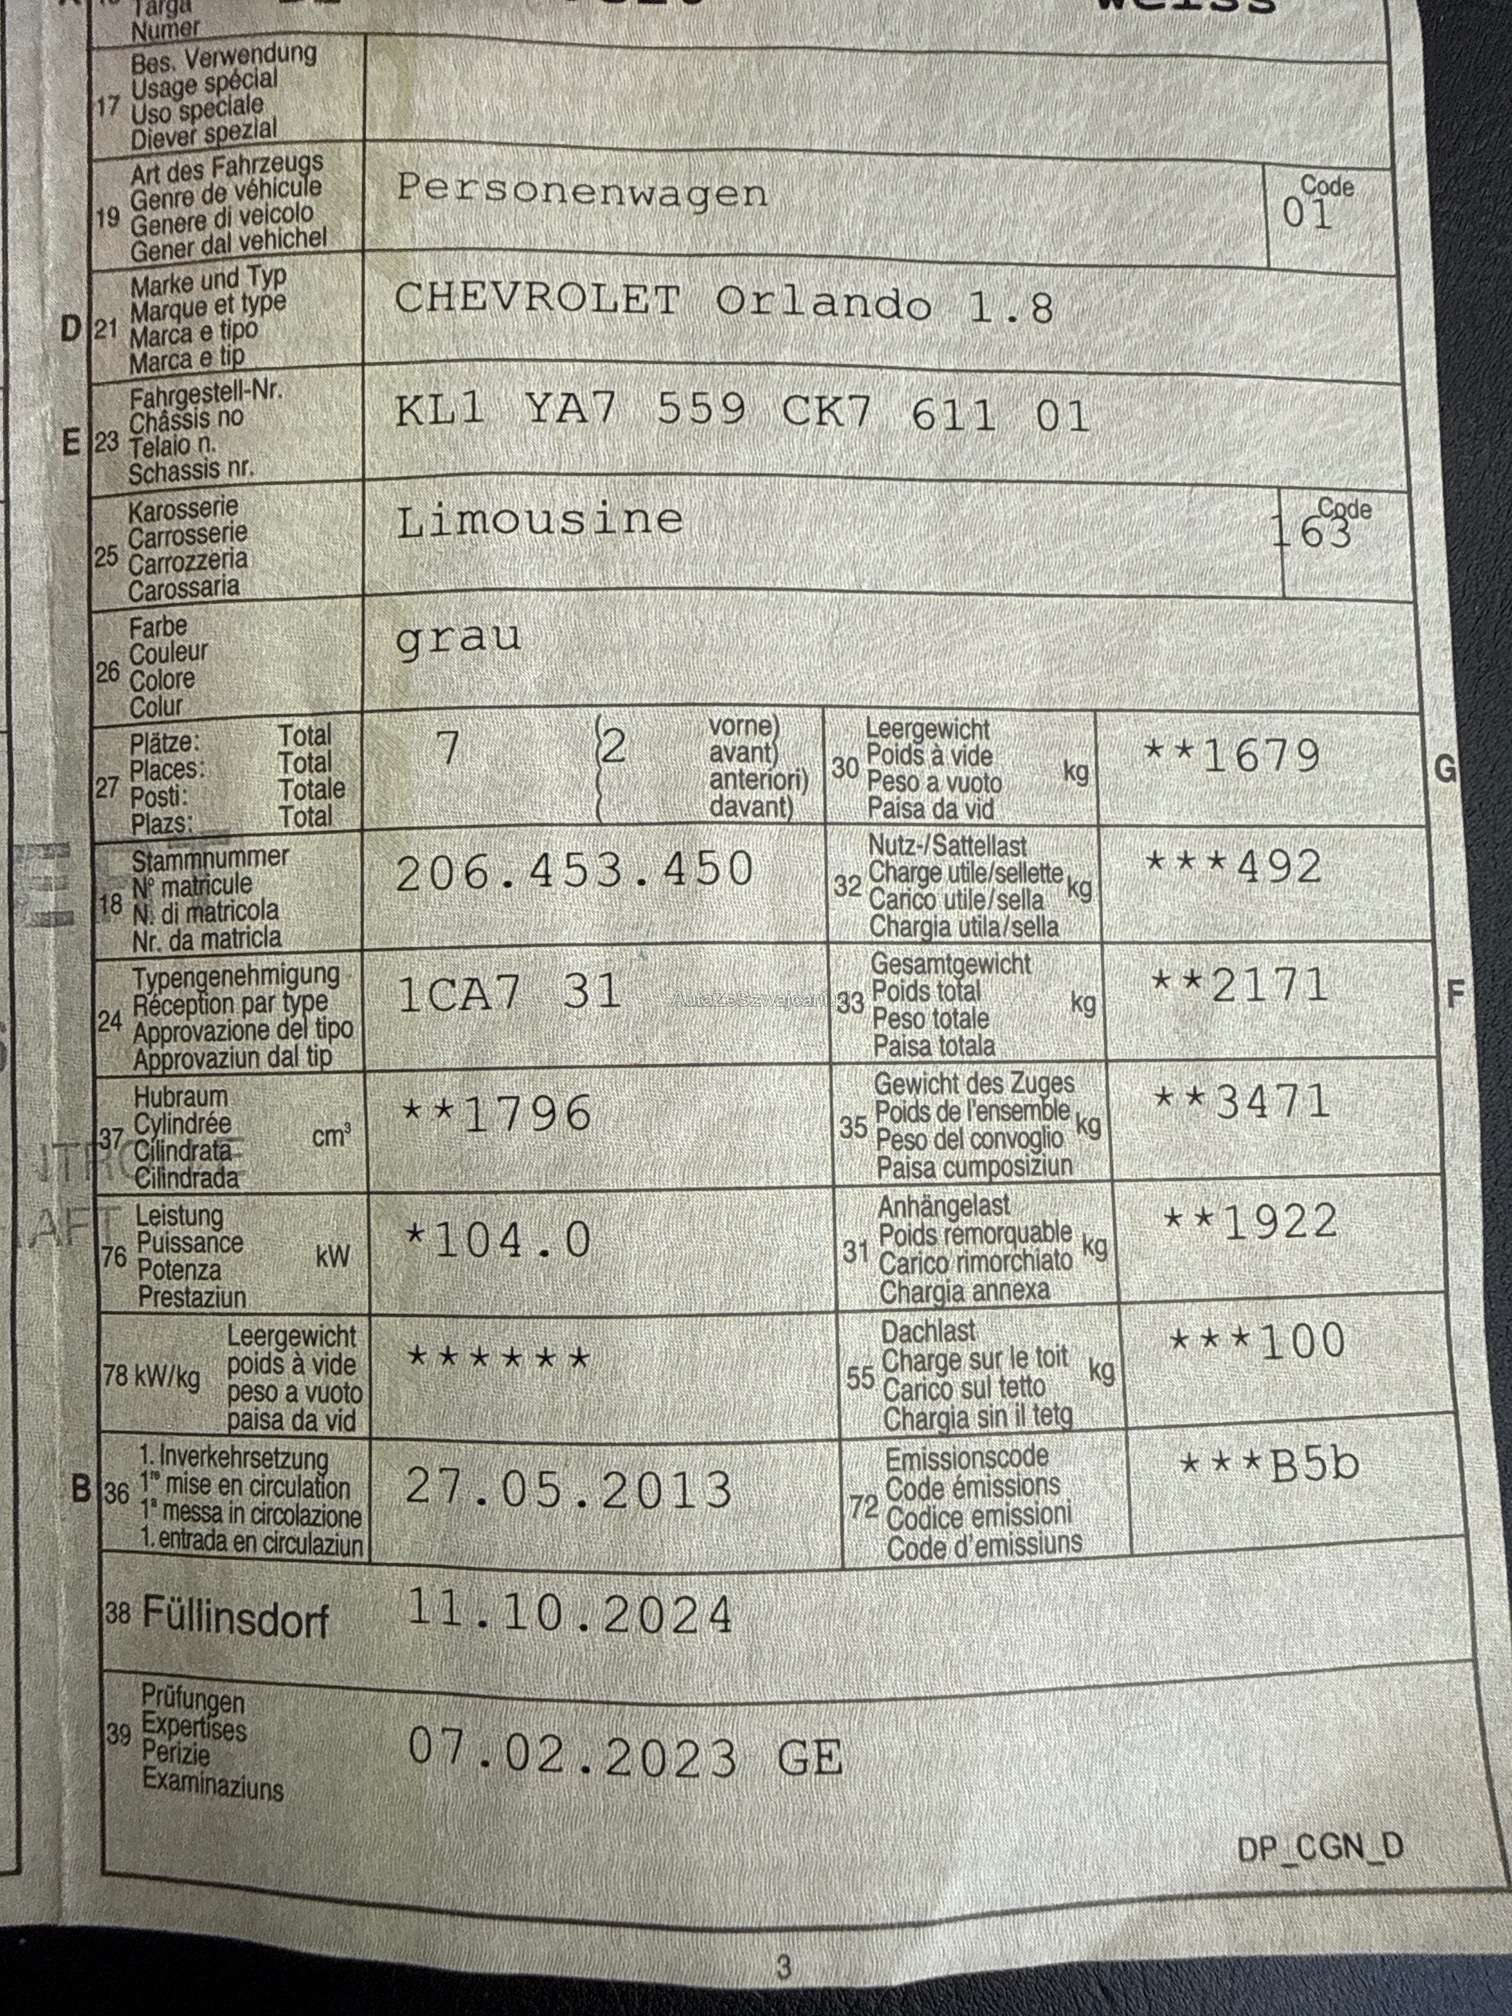 Targa
Numer
weiss
17 Bes. Verwendung
Usage spécial
Uso speciale
Diever spezial
19 Art des Fahrzeugs
Genre de véhicule
Genere di veicolo
Gener dal vehichel
Personenwagen
Code
01
D 21 Marke und Typ
Marque et type
Marca e tipo
Marca e tip
CHEVROLET Orlando 1.8
E 23 Fahrgestell-Nr.
Châssis no
Telaio n.
Schassis nr.
KL1 YA7 559 CK7 611 01
25 Karosserie
Carrosserie
Carrozzeria
Carossaria
Limousine
Code
163
26 Farbe
Couleur
Colore
Colur
grau
27 Plätze: Total
Places: Total
Posti: Totale
Plazs: Total
7 (2 vorne)
avant)
anteriori)
davant)
30 Leergewicht
Poids à vide
Peso a vuoto
Paisa da vid
kg
**1679
G
18 Stammnummer
N° matricule
N. di matricola
Nr. da matricla
206.453.450
32 Nutz-/Sattellast
Charge utile/sellette
Carico utile/sella
Chargia utila/sella
kg
***492
24 Typengenehmigung
Réception par type
Approvazione del tipo
Approvaziun dal tip
1CA7 31
33 Gesamtgewicht
Poids total
Peso totale
Paisa totala
kg
**2171
F
37 Hubraum
Cylindrée
Cilindrata
Cilindrada
cm³
**1796
35 Gewicht des Zuges
Poids de l'ensemble
Peso del convoglio
Paisa cumposiziun
kg
**3471
76 Leistung
Puissance
Potenza
Prestaziun
kW
*104.0
31 Anhängelast
Poids remorquable
Carico rimorchiato
Chargia annexa
kg
**1922
78 kW/kg Leergewicht
poids à vide
peso a vuoto
paisa da vid
******
55 Dachlast
Charge sur le toit
Carico sul tetto
Chargia sin il tetg
kg
***100
B 36 1. Inverkehrsetzung
1re mise en circulation
1a messa in circolazione
1. entrada en circulaziun
27.05.2013
72 Emissionscode
Code émissions
Codice emissioni
Code d'emissiuns
***B5b
38 Füllinsdorf 11.10.2024
39 Prüfungen
Expertises
Perizie
Examinaziuns
07.02.2023 GE
DP_CGN_D
3